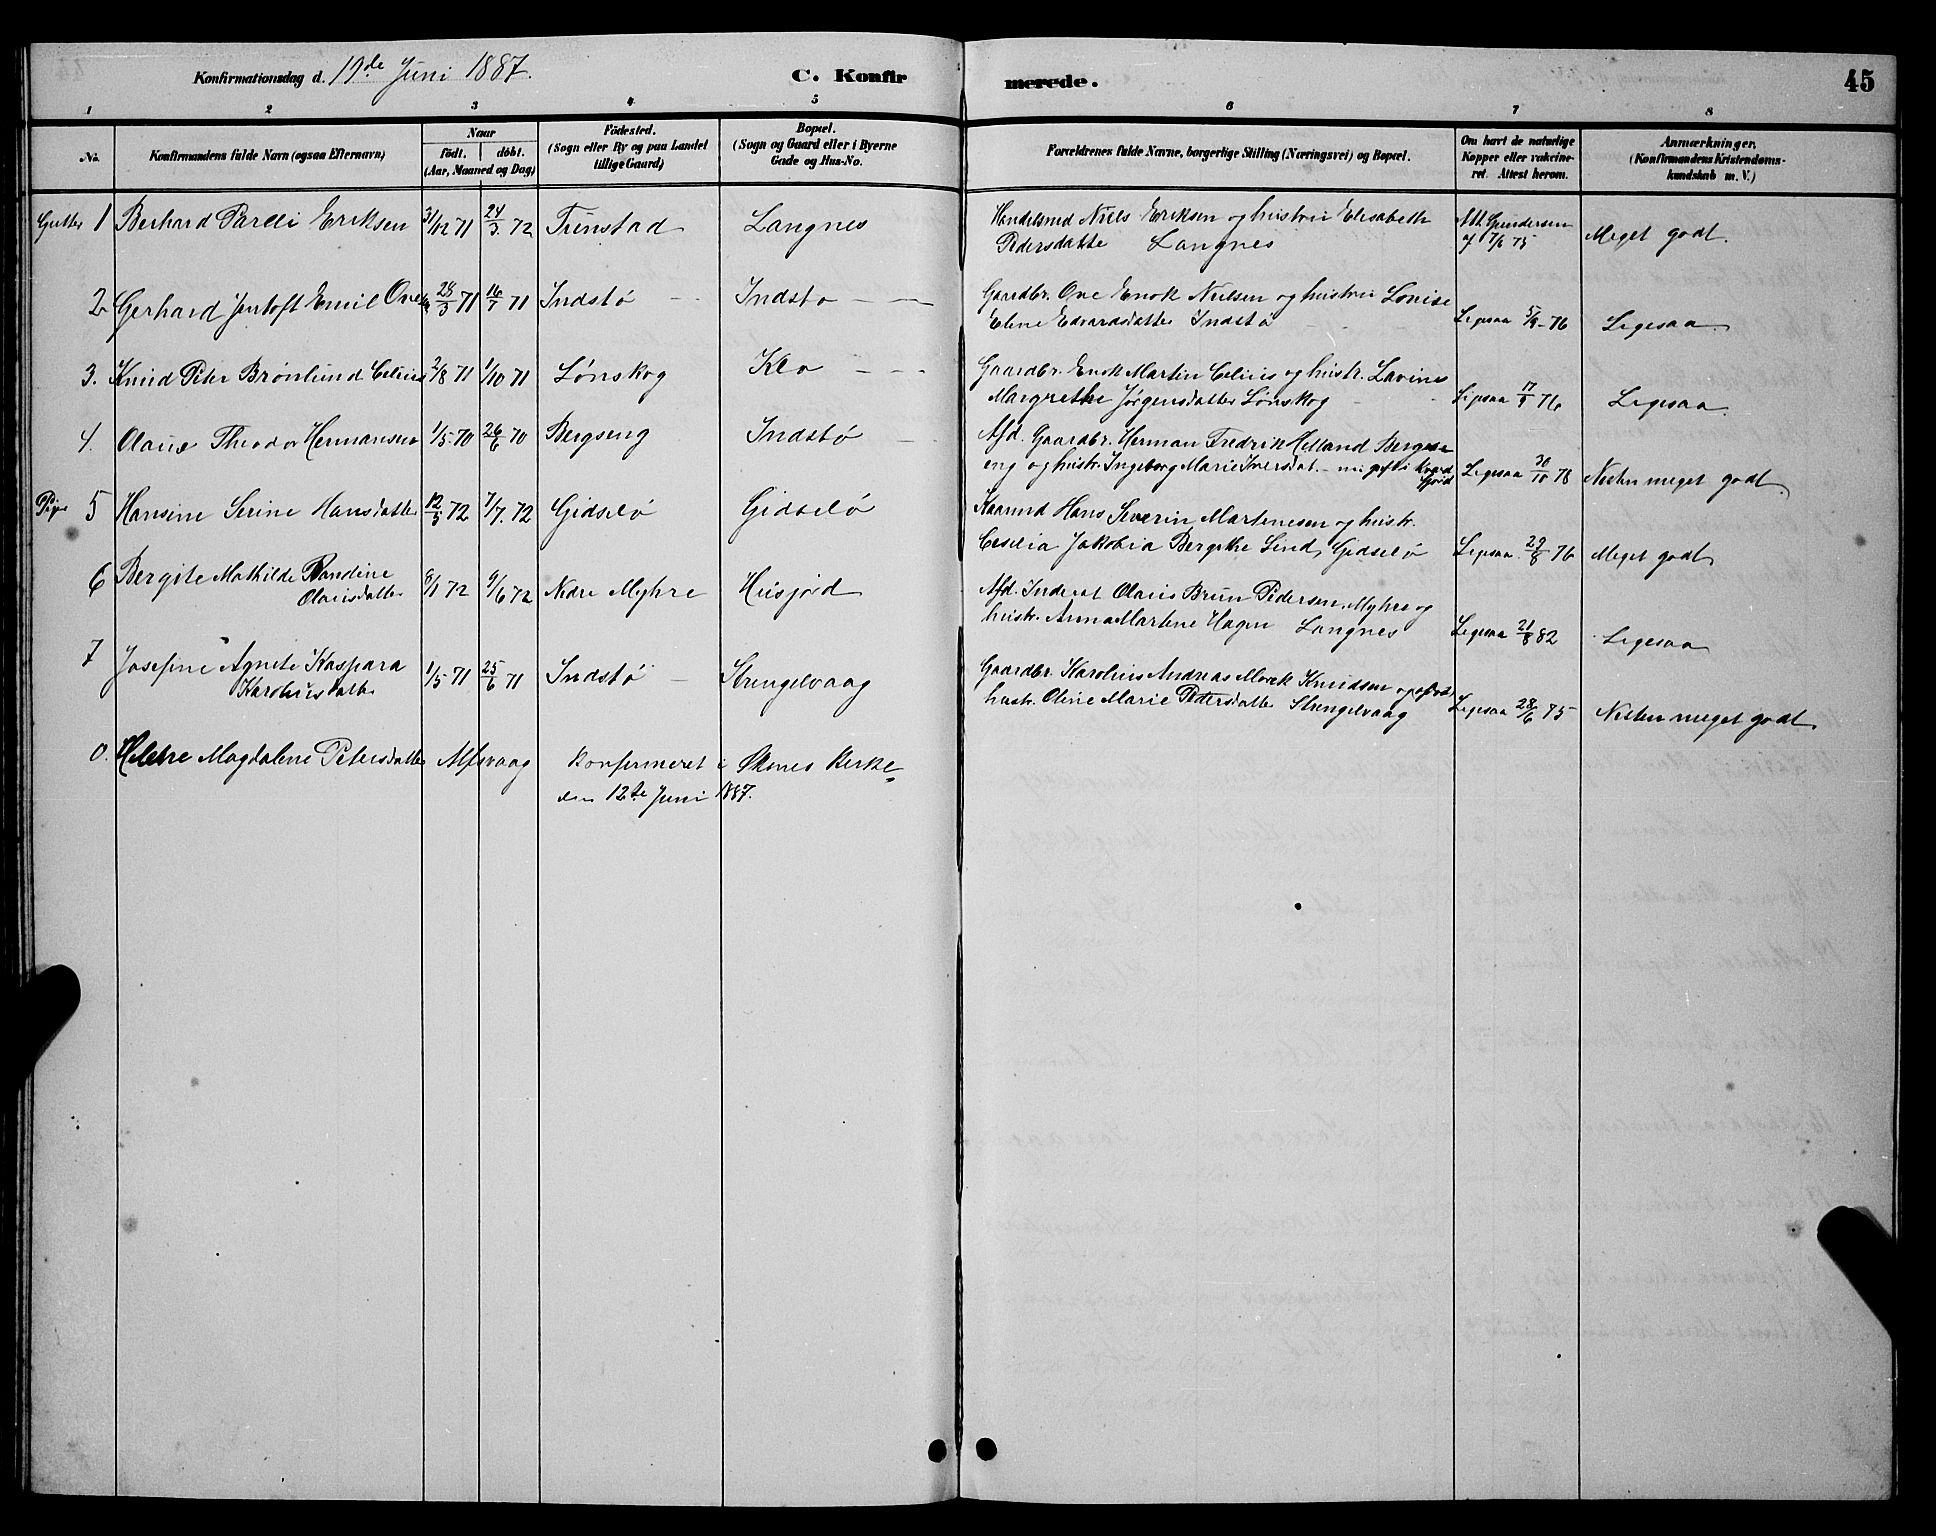 Konfirmationsdag d. 19de Juni 1887.
C. Konfir
merede.
45
1 2 3 4 5 6 7 8
No.
Konfirmandens fulde Navn (ogsaa Efternavn)
Naar
födt. döbt.
(Aar, Maaned og Dag)
Födested.
(Sogn eller By og paa Landet
tillige Gaard)
Bopæl.
(Sogn og Gaard eller i Byerne
Gade og Hus-No.
Forældrenes fulde Navne, borgerlige Stilling (Næringsvei) og Bopæl.
Om havt de naturlige
Kopper eller vakcine-
ret. Attest herom.
Anmærkninger.
(Konfirmandens Kristendoms-
kundskab m. V.)
Gutter 1 Berhard Pareli Eriksen 31/12 71 24/3 72 Tunstad Langnes
Handelsmd Niels Eriksen og hustru Elisabeth
Pedersdatte Langnes
Att. Gundersen
af 7/6 75 Meget godt.
2 Gerhard Jentoft Emil 28/3 71 16/7 71 Indstø Indstø
Gaardbr. Ove Enok Nielsen og hustru Lovise
Eline Edvardsdatter Indstø Ligesaa 5/9 - 76 Ligesaa
3. Knud Peter Brønlund Celius 2/8 71 1/10 71 Lønskog Klo
Gaardbr. Enok Martin Celius og hustr. Lavine
Margrethe Jørgensdatter Lønskog Ligesaa 17/9 76 Ligesaa
4. Olaus Theodor Hermansen 1/5 - 70 26/6 70 Bergseng Indstø
Afd. Gaardbr. Herman Fredrik Helland Bergs-
eng og hustr. Ingeborg Marie Iversdat. - nu gift i
Ligesaa 30/10 78 Nesten meget godt.
Piger 5 Hansine Serine Hansdatter 12/3 72 7/7. 72 Gidselø Gidselø
Kaarmd Hans Severin Martinesen og hustr.
Cecilia Jakobia Bergithe Lind, Gidselø Ligesaa 29/8 76 Meget godt
6 Bergite Mathilde Randine
Olausdatter 8/1 72 9/6 72 Nedre Myhre Husjord
Afd. Inderst Olaus Brun Pedersen, Myhre og
hustr. Anna Martine Hagen Langnes Ligesaa 21/8 82 Ligesaa
7 Josefine Agnete Kaspara
Karoliusdatter 1/5 71 25/6 71 Indstø Strengelvaag
Gaardbr. Karolius Andreas Moræk Knudsen og
hustr. Oline Marie Pedersdatte Strengelvaag Ligesaa 28/6 75 Nesten meget godt.
0. Helene Magdalene Petersdatter Alfsvaag Konfirmeret i Øksnes Kirke
den 12te Juni 1887.